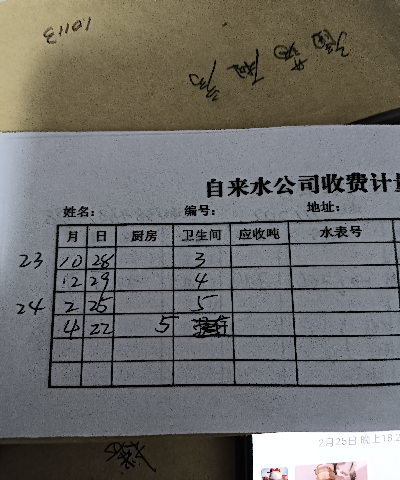 10113
自来水公司收费计量
姓名： 编号： 地址：
月 日 厨房 卫生间 应收吨 水表号
23 10 28 3
12 29 4
24 2 25 5
4 22 5
2月25日 晚上18:2